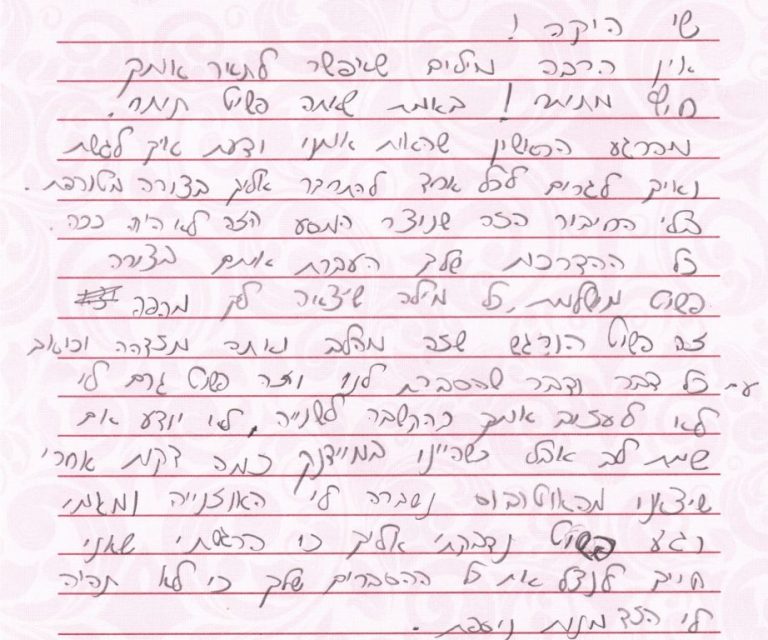 שי היקר !
אין הרבה מילים שאפשר לתאר אותך
חוץ מתותח ! באמת שאתה פשוט תותח.
מהרגע הראשון שראית אותנו ידעת איך לגשת
ואיך לגרום לכל אחד להתחבר אליך בצורה מטורפת .
בלי החיבור הזה שנוצר המסע הזה לא היה ככה .
כל ההדרכות שלך העברת אותם בצורה
פשוט מושלמת. כל מילה שיצאה לך מהפה
זה פשוט הורגש שזה מהלב ואיתה מזדהה וכואב
עם כל דבר ודבר שהסברת לנו וזה פשוט גרם לי
לא לעזוב אותך בהקשבה לשנייה, לא יודע אם
שמת לב אבל כשהיינו במיידנק כמה דקות אחרי
שיצאנו מהאוטובוס נשברה לי האוזנייה ומאותו
רגע פשוט נדבקתי אליך כי הרגשתי שאני
חייב לנצל את כל ההסברים שלך כי לא תהיה
לי הזדמנות נוספת .